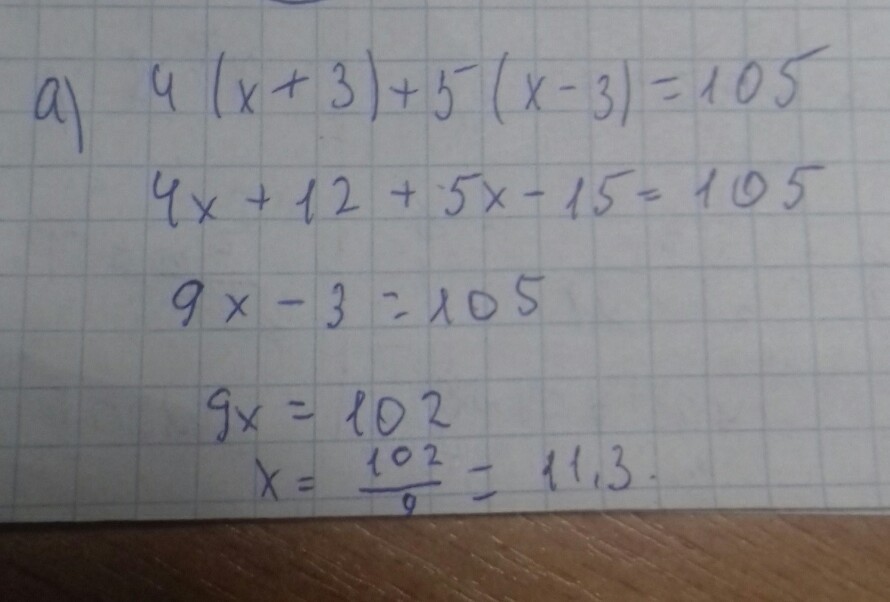 а) 4(x+3)+5(x-3)=105
4x+12+5x-15=105
9x-3=105
9x=102
x=102/9=11.3.